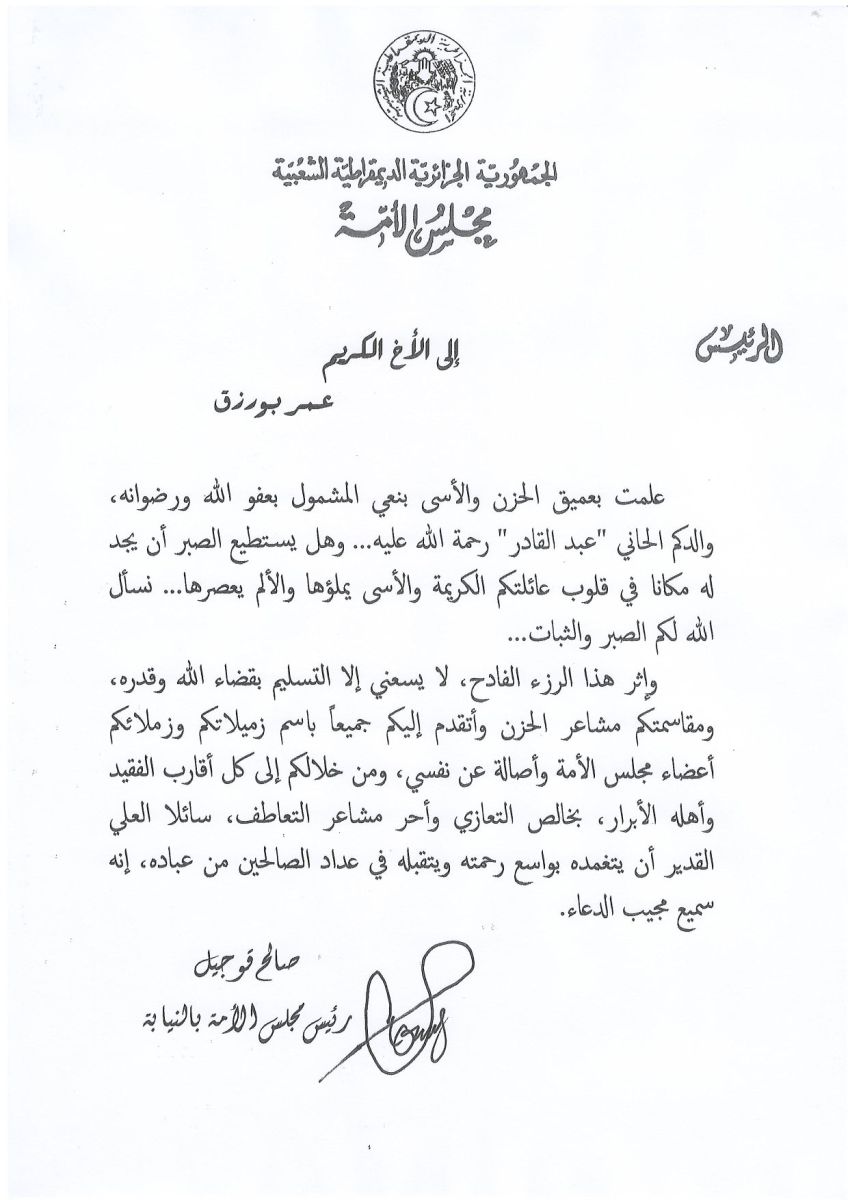 الجمهورية الجزائرية الديمقراطية الشعبية
الجمهُوريّة الجزائريّة الديمقراطيّة الشعْبيّة
مجْلسُ الأمّة
الرئيس
إلى الأخ الكريم
عمر بورزق
علمت بعميق الحزن والأسى بنعي المشمول بعفو الله ورضوانه،
والدكم الحاني "عبد القادر" رحمة الله عليه... وهل يستطيع الصبر أن يجد
له مكانا في قلوب عائلتكم الكريمة والأسى يملؤها والألم يعصرها... نسأل
الله لكم الصبر والثبات...
وإثر هذا الرزء الفادح، لا يسعني إلا التسليم بقضاء الله وقدره،
ومقاسمتكم مشاعر الحزن وأتقدم إليكم جميعاً باسم زميلاتكم وزملائكم
أعضاء مجلس الأمة وأصالة عن نفسي، ومن خلالكم إلى كل أقارب الفقيد
وأهله الأبرار، بخالص التعازي وأحر مشاعر التعاطف، سائلا العلي
القدير أن يتغمده بواسع رحمته ويتقبله في عداد الصالحين من عباده، إنه
سميع مجيب الدعاء.
صالح قوجيل
رئيس مجلس الأمة بالنيابة